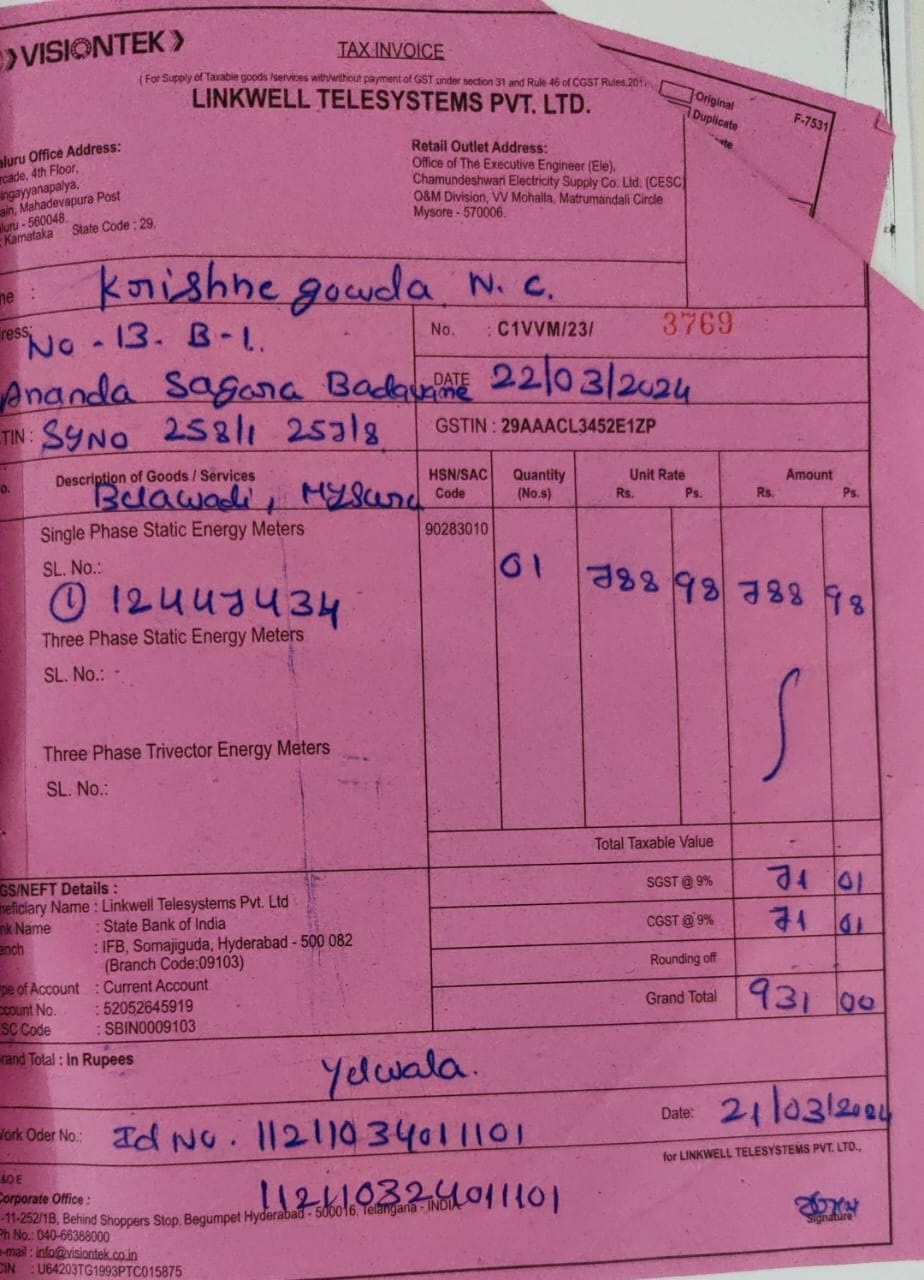 VISIONTEK
TAX INVOICE
( For Supply of Taxable goods /services with/without payment of GST under section 31 and Rule 46 of CGST Rules,201
LINKWELL TELESYSTEMS PVT. LTD.
Original
Duplicate
ate
F-7531
aluru Office Address:
rcade, 4th Floor,
ingayyanapalya,
ain, Mahadevapura Post
luru - 560048.
Karnataka State Code : 29,
Retail Outlet Address:
Office of The Executive Engineer (Ele),
Chamundeshwari Electricity Supply Co. Ltd. (CESC)
O&M Division, VV Mohalla, Matrumandali Circle
Mysore - 570006.
ne : Krishne gowda N. C.
ress: No - 13. B-1.
No. : C1VVM/23/ 3769
Ananda Sagara Badavane
DATE 22/03/2024
TIN : SYNO 258/1 257/8
GSTIN : 29AAACL3452E1ZP
o. Description of Goods / Services HSN/SAC Code Quantity (No.s) Unit Rate Rs. Ps. Amount Rs. Ps.
Belawadi, MYSuru
Single Phase Static Energy Meters 90283010
SL. No.: 01 788 98 788 98
① 12447434
Three Phase Static Energy Meters
SL. No.: -
Three Phase Trivector Energy Meters
SL. No.:
Total Taxable Value -
GS/NEFT Details :
SGST @ 9% 71 01
neficiary Name : Linkwell Telesystems Pvt. Ltd
nk Name : State Bank of India
CGST @ 9% 71 01
anch : IFB, Somajiguda, Hyderabad - 500 082
(Branch Code:09103)
Rounding off - -
pe of Account : Current Account
ccount No. : 52052645919
Grand Total 931 00
SC Code : SBIN0009103
rand Total : In Rupees
Yelwala.
Work Oder No.: Id No. 11211034011101
Date: 21/03/2024
for LINKWELL TELESYSTEMS PVT. LTD.,
&O E
112110324011101
Corporate Office :
-11-252/1B, Behind Shoppers Stop, Begumpet Hyderabad - 500016, Telangana - INDIA
Signature
Ph No.: 040-66388000
e-mail : info@visiontek.co.in
CIN : U64203TG1993PTC015875